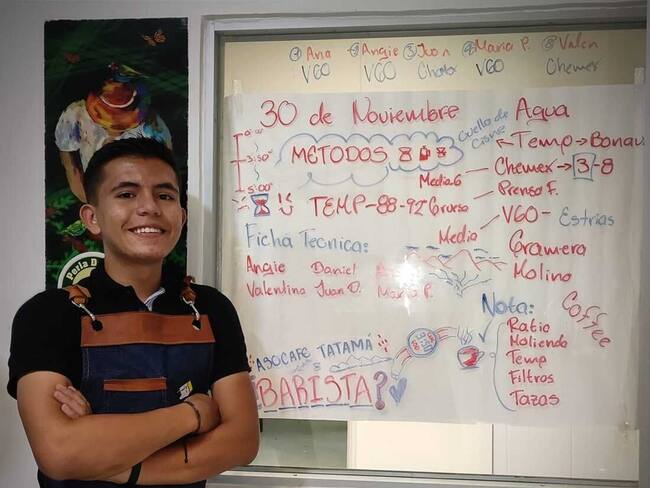 ① Ana ② Angie ③ Juan ④ Maria P. ⑤ Valen
V60 V60 Chemex V60 Chemex
30 de Noviembre
Agua
0:00
3:50"
5:00"
METODOS
Cuello de Cisne
Temp → Bonav
Media G
Chemex → 3-8
Prensa F.
TEMP-88-92
Gruesa
V60 - Estrias
Media
Ficha Tecnica:
Gramera
Molino
Angie Daniel
Valentina Juan D. Maria P.
Nota:
Coffee
Ratio
Moliendo
Temp
Filtros
Tazas
ASOCAFE TATAMÁ
¿BARISTA?
Perla D